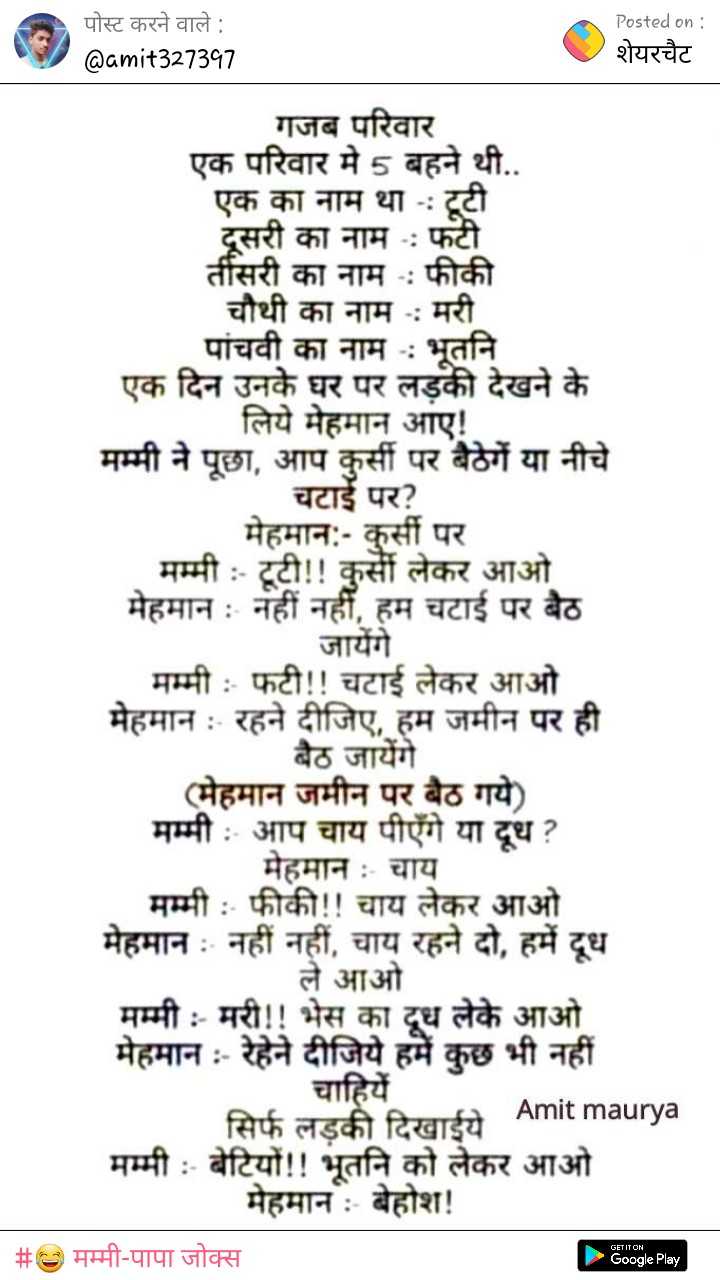 पोस्ट करने वाले :
@amit327397
Posted on :
शेयरचैट
गजब परिवार
एक परिवार मे 5 बहने थी..
एक का नाम था -: टूटी
दूसरी का नाम -: फटी
तीसरी का नाम -: फीकी
चौथी का नाम -: मरी
पांचवी का नाम -: भूतनि
एक दिन उनके घर पर लड़की देखने के
लिये मेहमान आए!
मम्मी ने पूछा, आप कुर्सी पर बैठेगें या नीचे
चटाई पर?
मेहमान:- कुर्सी पर
मम्मी :- टूटी!! कुर्सी लेकर आओ
मेहमान :- नहीं नहीं, हम चटाई पर बैठ
जायेंगे
मम्मी :- फटी!! चटाई लेकर आओ
मेहमान :- रहने दीजिए, हम जमीन पर ही
बैठ जायेंगे
(मेहमान जमीन पर बैठ गये)
मम्मी :- आप चाय पीएँगे या दूध ?
मेहमान :- चाय
मम्मी :- फीकी!! चाय लेकर आओ
मेहमान :- नहीं नहीं, चाय रहने दो, हमें दूध
ले आओ
मम्मी :- मरी!! भेस का दूध लेके आओ
मेहमान :- रेहेने दीजिये हमें कुछ भी नहीं
चाहियें
सिर्फ लड़की दिखाईये
Amit maurya
मम्मी :- बेटियों!! भूतनि को लेकर आओ
मेहमान :- बेहोश!
#😂 मम्मी-पापा जोक्स
GET IT ON
Google Play